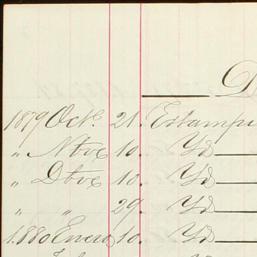 D
1879 Octe. 21. Estampi
" Nbre 10. Yd
" Dbre 10. Yd
" " 29. Yd
1.880 Enero 10. Yd